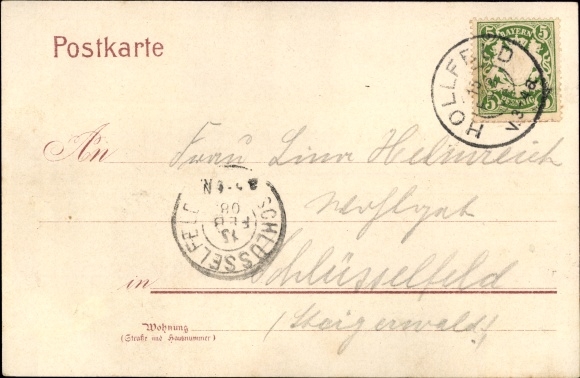 Postkarte
5 BAYERN 5
5 PFENNIG 5
HOLLFELD
An Frau Lina Heinreich
Wohlgeb
SCHLÜSSELFELD
13
FEB
08
in Schlüsselfeld
(Steigerwald)
Wohnung
(Straße und Hausnummer)